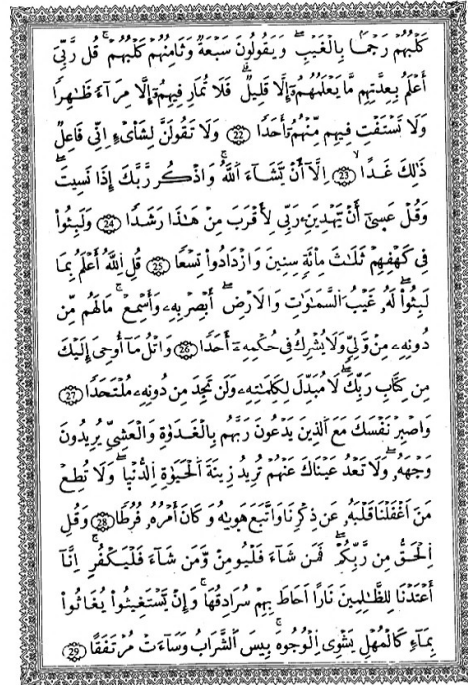 كَلْبُهُمْ رَجْمًا بِالْغَيْبِ وَيَقُولُونَ سَبْعَةٌ وَثَامِنُهُمْ كَلْبُهُمْ قُل رَّبِّيَ
أَعْلَمُ بِعِدَّتِهِم مَّا يَعْلَمُهُمُۥ إِلَّا قَلِيلٌ فَلَا تُمَارِ فِيهِمُۥ إِلَّا مِرَآءً ظَٰهِرًا
وَلَا تَسْتَفْتِ فِيهِم مِّنْهُمُۥ أَحَدًا 22 وَلَا تَقُولَنَّ لِشَاْىْءٍ اِنِّى فَاعِلٌ
ذَٰلِكَ غَدًا 23 اِلَّآ أَنْ يَّشَآءَ اَللَّهُ وَاذْكُر رَّبَّكَ إِذَا نَسِيتَ
وَقُلْ عَسَىٰٓ أَنْ يَّهْدِيَنِۦ رَبِّى لِأَقْرَبَ مِنْ هَٰذَا رَشَدًا 24 وَلَبِثُوا۟
فِى كَهْفِهِمْ ثَلَٰثَ مِاْئَةٍ سِنِينَ وَازْدَادُوا۟ تِسْعًا 25 قُلِ اِللَّهُ أَعْلَمُ بِمَا
لَبِثُوا۟ لَهُۥ غَيْبُ اُلسَّمَٰوَٰتِ وَالَارْضِ أَبْصِرْ بِهِۦ وَأَسْمِعْ مَا لَهُم مِّن
دُونِهِۦ مِنْ وَّلِىٍّ وَلَا يُشْرِكُ فِى حُكْمِهِۦٓ أَحَدًا 26 وَاتْلُ مَآ أُوحِىَ إِلَيْكَ
مِن كِتَابِ رَبِّكَ لَا مُبَدِّلَ لِكَلِمَٰتِهِۦ وَلَن تَجِدَ مِن دُونِهِۦ مُلْتَحَدًا 27
وَاصْبِرْ نَفْسَكَ مَعَ اَلذِينَ يَدْعُونَ رَبَّهُم بِالْغَدَوٰةِ وَالْعَشِىِّ يُرِيدُونَ
وَجْهَهُۥ وَلَا تَعْدُ عَيْنَاكَ عَنْهُمْ تُرِيدُ زِينَةَ اَلْحَيَوٰةِ اِلدُّنْيَا وَلَا تُطِعْ
مَنَ اَغْفَلْنَا قَلْبَهُۥ عَن ذِكْرِنَا وَاتَّبَعَ هَوَىٰهُ وَكَانَ أَمْرُهُۥ فُرُطًا 28 وَقُلِ
اِلْحَقُّ مِن رَّبِّكُمْ فَمَن شَآءَ فَلْيُومِنْ وَّمَن شَآءَ فَلْيَكْفُرِ اِنَّآ
أَعْتَدْنَا لِلظَّٰلِمِينَ نَارًا اَحَاطَ بِهِمْ سُرَادِقُهَا وَإِنْ يَّسْتَغِيثُوا۟ يُغَاثُوا۟
بِمَآءٍ كَالْمُهْلِ يَشْوِى اِلْوُجُوهَ بِيسَ اَلشَّرَابُ وَسَآءَتْ مُرْتَفَقًا 29